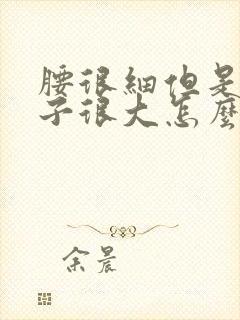 腰很細但是
子很大怎麼
余晨